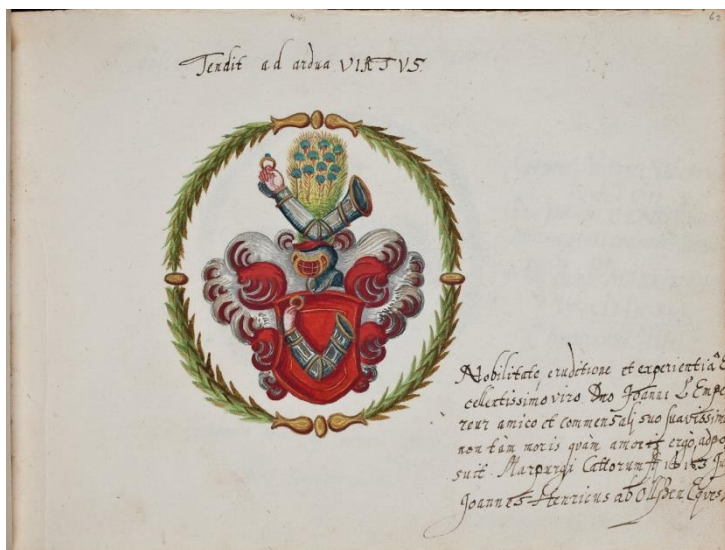 62
Tendit ad ardua VIRTVS.
Nobilitate, eruditione et experientiâ
cellentissimo viro Dno Joanni L'Empe
reur amico et commensali suo suavissimo
non tàm moris quàm amoris ergò, adpo
suit. Marpurgi Cattorum
Joannes-Henricus ab Eques